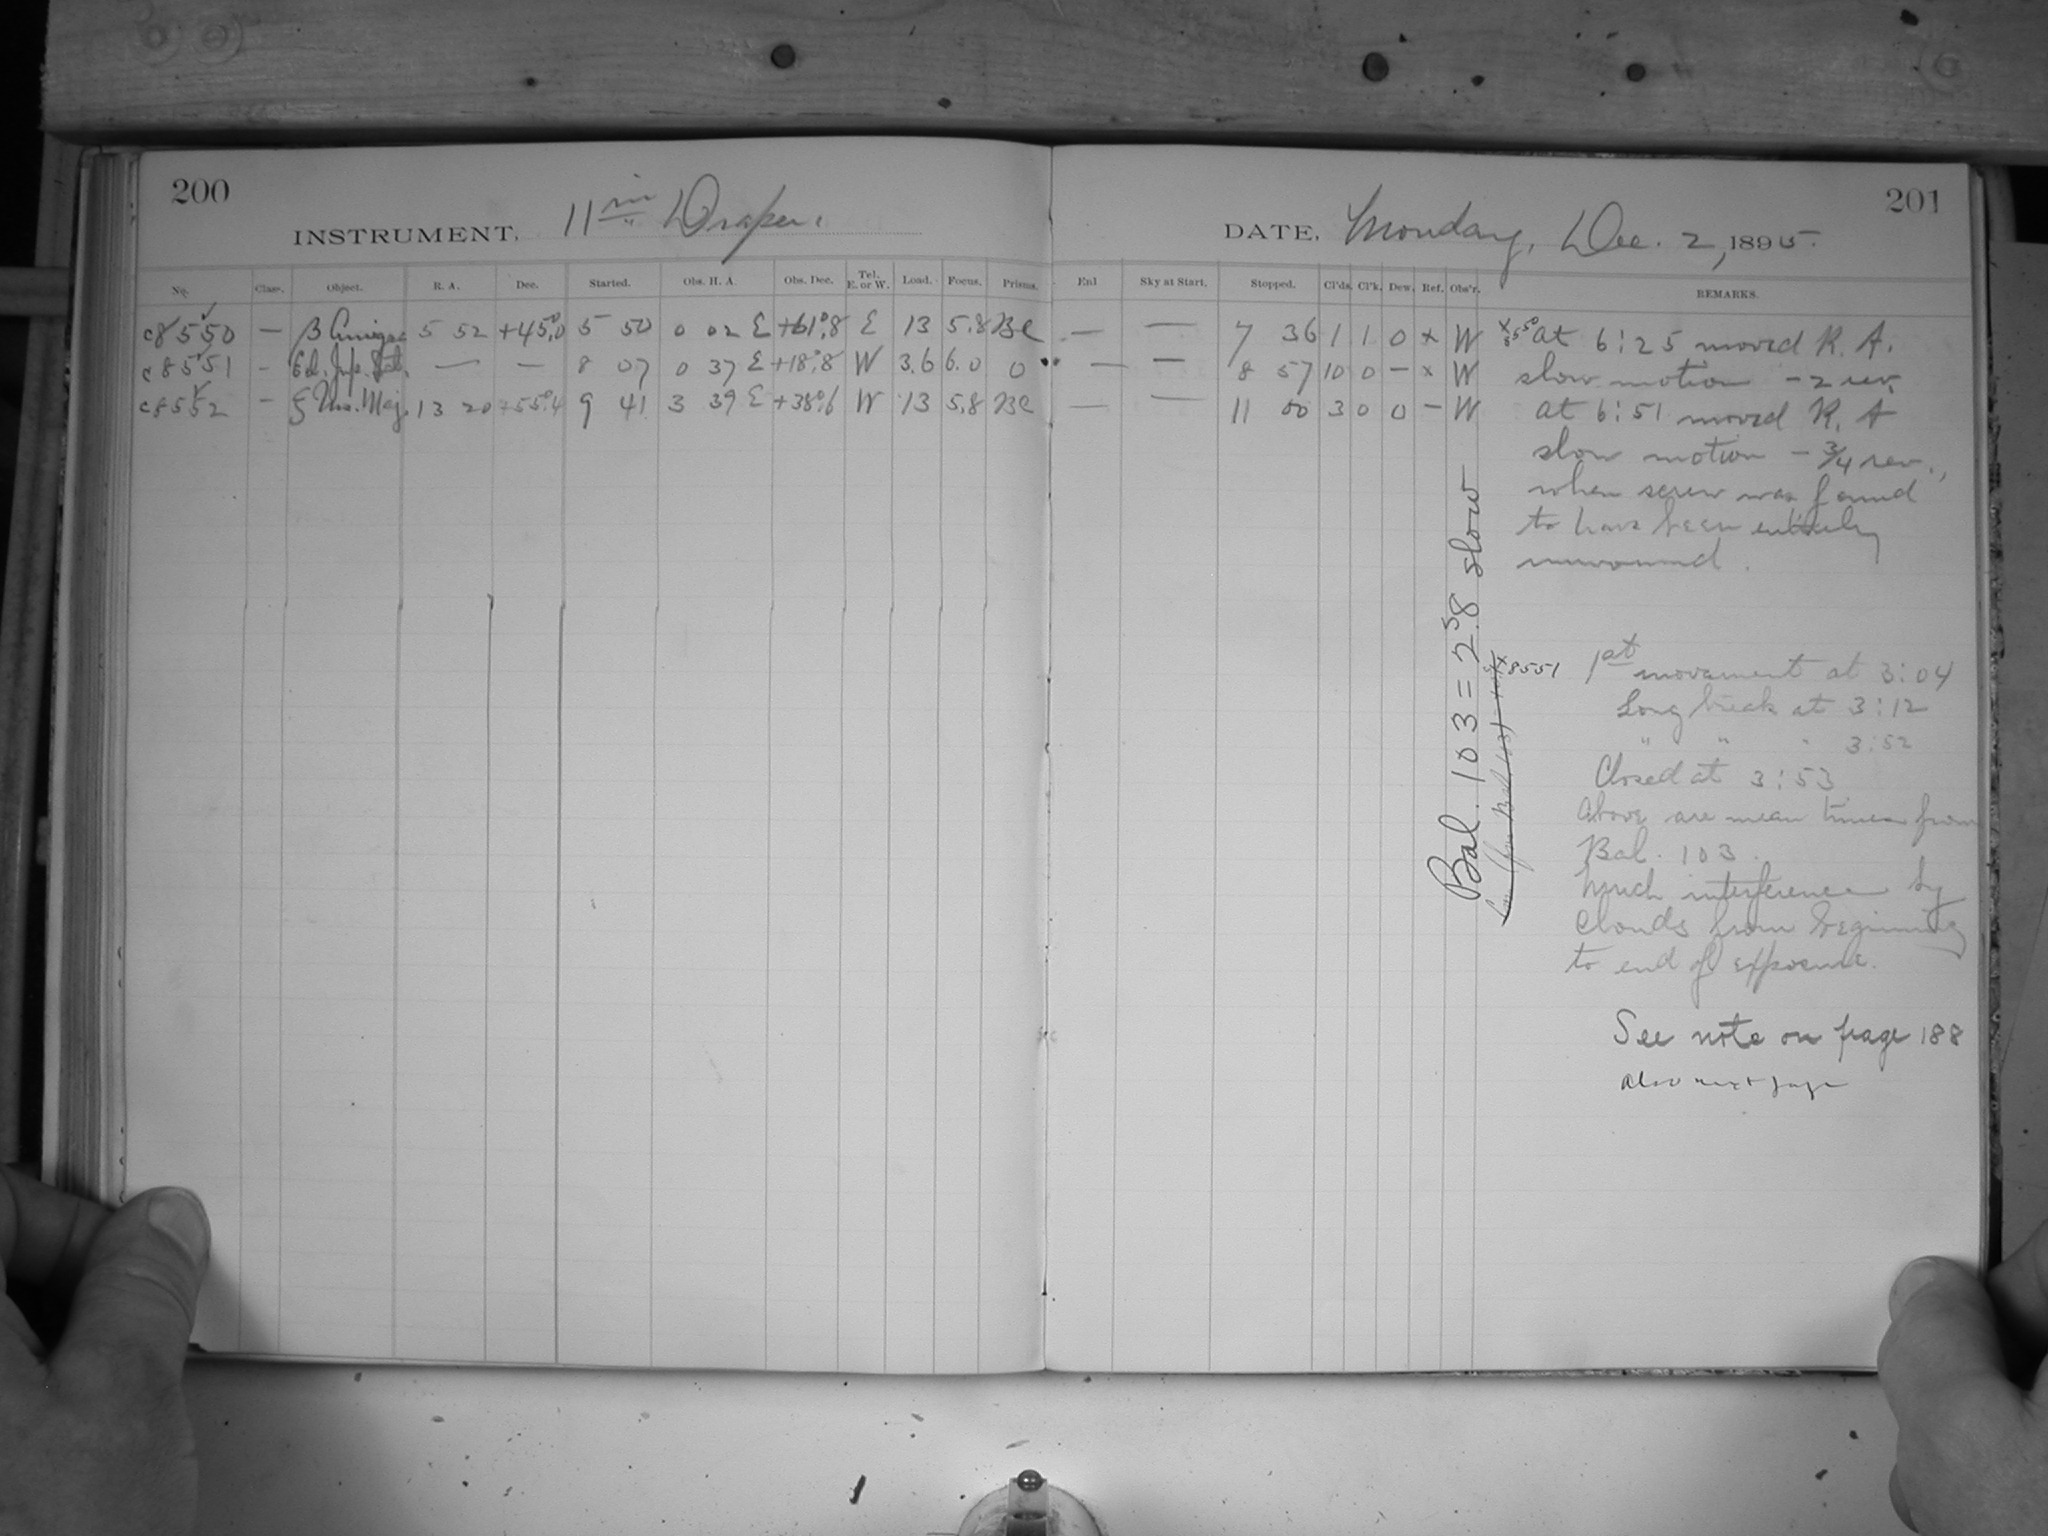 200
INSTRUMENT. 11 in Draper.
No. Class. Object. R. A. Dec. Started. Obs. H. A. Obs. Dec. Tel. E. or W. Load. Focus. Prisms.
c8550 — β Aurigae 5 52 +45°.0 5 50 0 02 E +61°.8 E 13 5.8 BC
c8551 - Ecl. Jup. Sat. — — 8 07 0 37 E +18°.8 W 3.6 6.0 0
c8552 - ζ Urs. Maj. 13 20 +55°.4 9 41 3 39 E +38°.6 W 13 5.8 BC
201
DATE. Monday, Dec. 2, 1895.
Enl Sky at Start. Stopped. Cl'ds. Cl'k. Dew. Ref. Obs'r. REMARKS.
— — 7 36 1 1 0 x W
— — 8 57 10 0 - x W
— — 11 00 3 0 0 - W
x8550 At 6:25 moved R. A.
slow motion - 2 rev.
At 6:51 moved R. A
slow motion - 3/4 rev.,
when screw was found
to have been entirely
unwound.
Bal. 103 = 2s.8 slow
x8551 1st movement at 3:04
Long break at 3:12
" " " 3:52
Closed at 3:53
Above are mean times from
Bal. 103.
Much interference by
clouds from beginning
to end of exposure.
See note on page 188
also next page